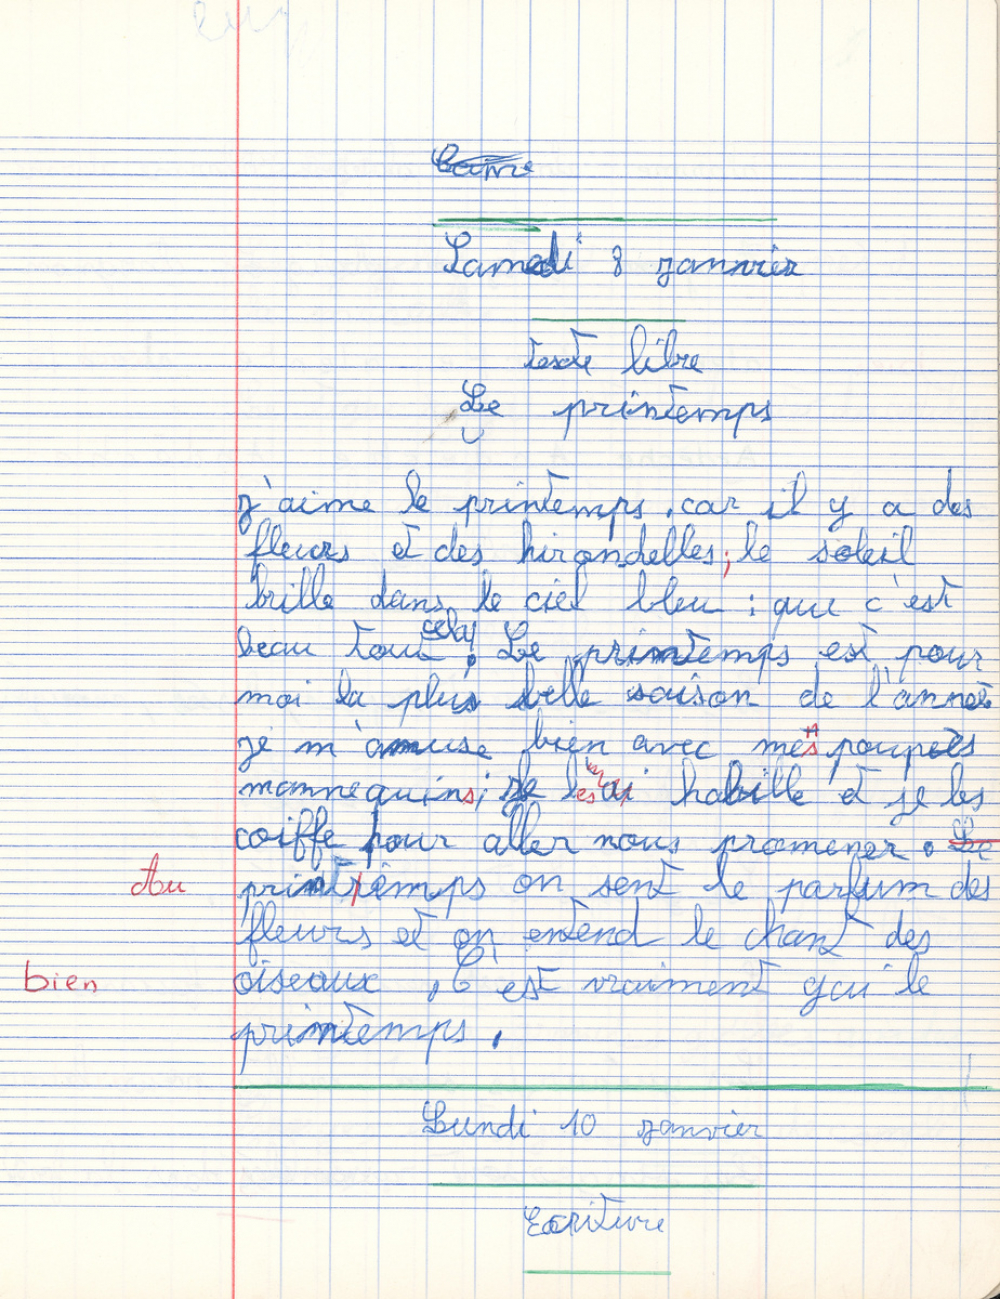 Samedi 8 janvier
texte libre
Le printemps
j'aime le printemps, car il y a des
fleurs et des hirondelles; le soleil
brille dans le ciel bleu : que c'est
beau tout cela! Le printemps est pour
moi la plus belle saison de l'année
je m'amuse bien avec mes poupées
mannequins; je les habille et je les
coiffe pour aller nous promener. Le
Au printemps on sent le parfum des
fleurs et on entend le chant des
bien oiseaux, C'est vraiment gai le
printemps.
Lundi 10 janvier
Ecriture